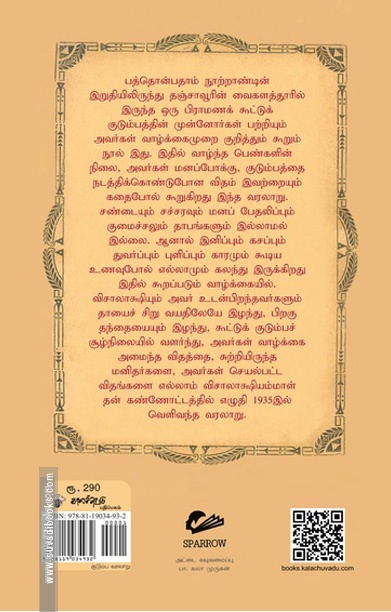 பத்தொன்பதாம் நூற்றாண்டின்
இறுதியிலிருந்து தஞ்சாவூரின் வைகளத்தூரில்
இருந்த ஒரு பிராமணக் கூட்டுக்
குடும்பத்தின் முன்னோர்கள் பற்றியும்
அவர்கள் வாழ்க்கைமுறை குறித்தும் கூறும்
நூல் இது. இதில் வாழ்ந்த பெண்களின்
நிலை, அவர்கள் மனப்போக்கு, குடும்பத்தை
நடத்திக்கொண்டுபோன விதம் இவற்றையும்
கதைபோல் கூறுகிறது இந்த வரலாறு.
சண்டையும் சச்சரவும் மனப் பேதலிப்பும்
குமைச்சலும் தாபங்களும் இல்லாமல்
இல்லை. ஆனால் இனிப்பும் கசப்பும்
துவர்ப்பும் புளிப்பும் காரமும் கூடிய
உணவுபோல் எல்லாமும் கலந்து இருக்கிறது
இதில் கூறப்படும் வாழ்க்கையில்.
விசாலாக்ஷியும் அவர் உடன்பிறந்தவர்களும்
தாயைச் சிறு வயதிலேயே இழந்து, பிறகு
தந்தையையும் இழந்து, கூட்டுக் குடும்பச்
சூழ்நிலையில் வளர்ந்து, அவர்கள் வாழ்க்கை
அமைந்த விதத்தை, சுற்றியிருந்த
மனிதர்களை, அவர்கள் செயல்பட்ட
விதங்களை எல்லாம் விசாலாக்ஷியம்மாள்
தன் கண்ணோட்டத்தில் எழுதி 1935இல்
வெளிவந்த வரலாறு.
ரூ. 290
காலச்சுவடு
பதிப்பகம்
ISBN 978-81-19034-93-2
00001
9 788119 034932
குடும்ப வரலாறு
SPARROW
அட்டை வடிவமைப்பு
பா. கலா முருகன்
books.kalachuvadu.com
www.suvadibooks.com